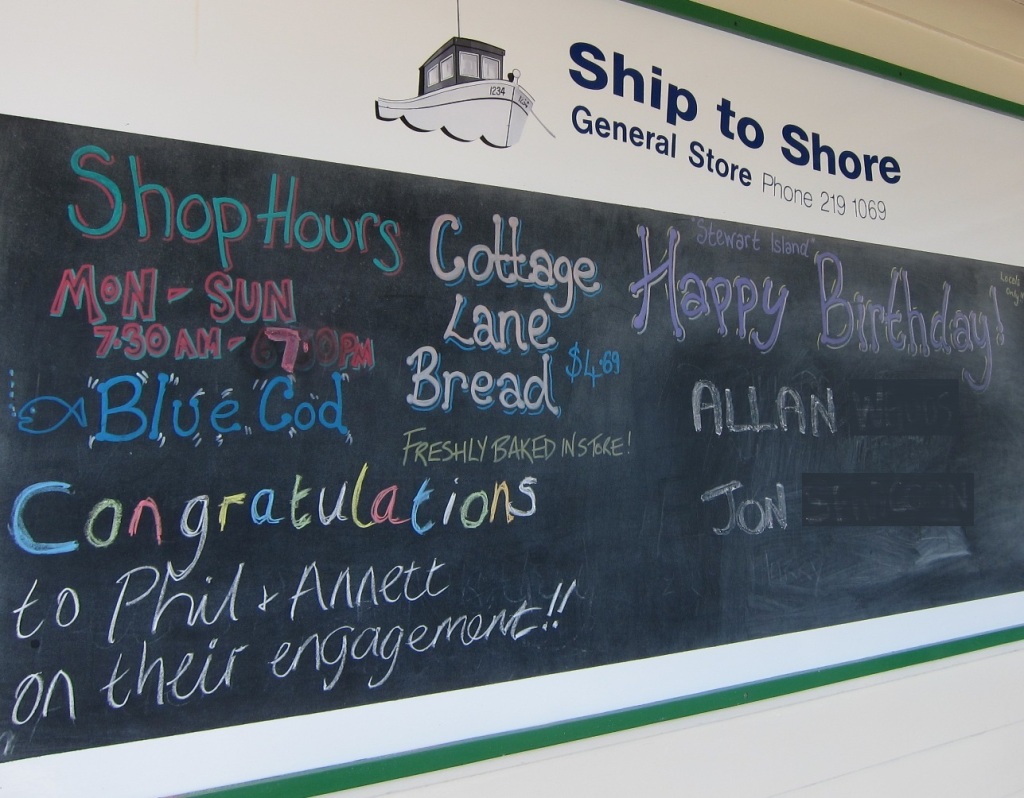 1234
1234
Ship to Shore
General Store Phone 219 1069
Shop Hours
MON - SUN
7.30 AM - 7 PM
"Blue Cod"
Cottage
Lane
Bread $4.69
FRESHLY BAKED IN STORE!
Congratulations
to Phil & Annett
on their engagement!!
"Stewart Island"
Happy Birthday!
ALLAN
JON